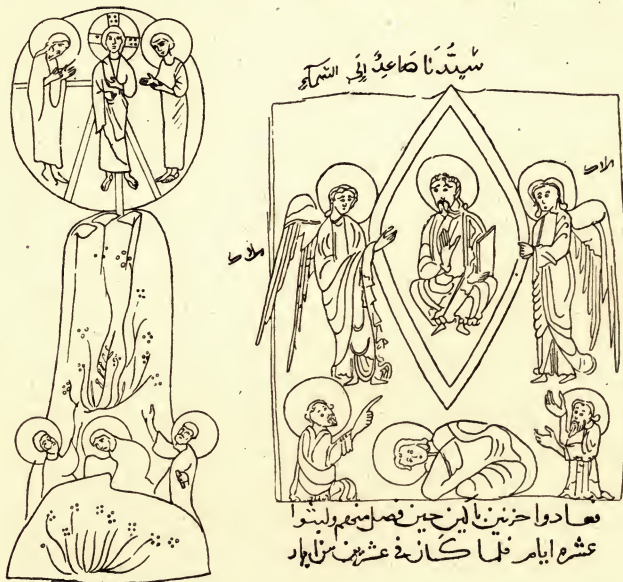 سيدُنَا صَاعِدٌ إِلَى السَّمَآءِ
ملاك
ملاك
فعادوا حزنين باكين حين فصل منهم ولبثوا
عشره ايام فلما كان في عشرين من ايار